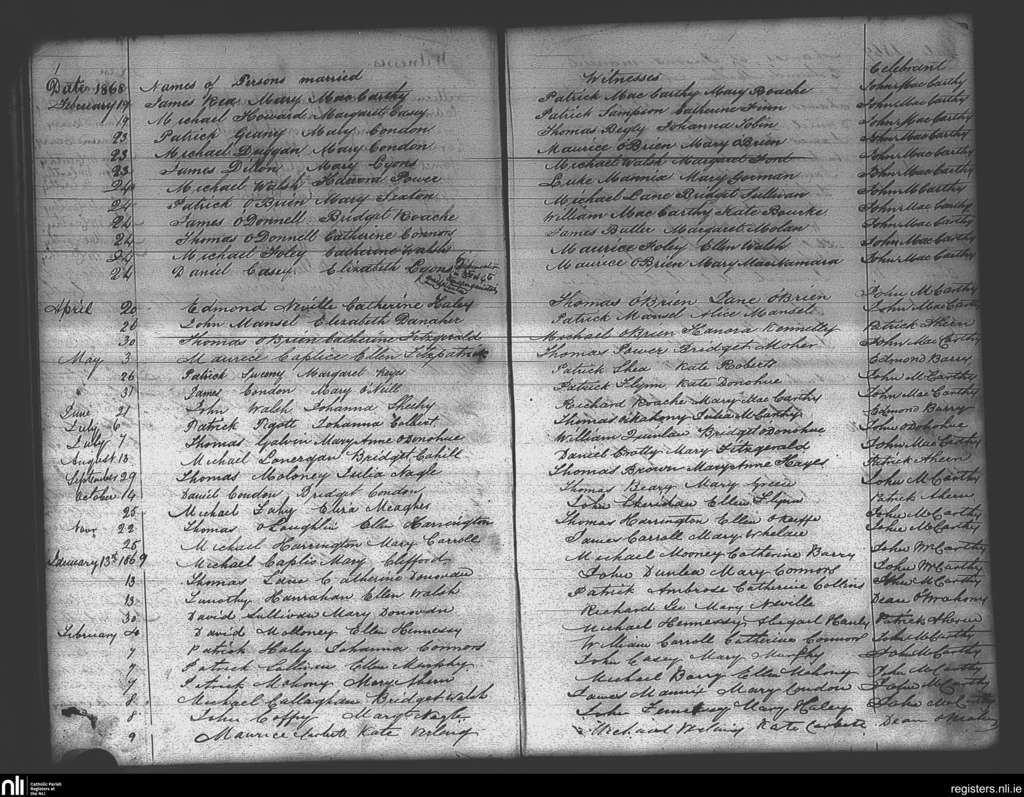 Date 1868 Names of Persons married Witnesses Celebrant
February 19 James Rea Mary MacCarthy Patrick MacCarthy Mary Roache John MacCarthy
19 Michael Howard Margaret Casey Patrick Sampson Catherine Finn John MacCarthy
23 Patrick Geany Mary Condon Thomas Begly Johanna Tobin John MacCarthy
23 Michael Duggan Mary Condon Maurice O'Brien Mary O'Brien John MacCarthy
23 James Dillon Mary Lyons Michael Walsh Margaret Ford John MacCarthy
24 Michael Walsh Honora Power Luke Mannix Mary Gorman John MacCarthy
24 Patrick O'Brien Mary Sexton Michael Lane Bridget Sullivan John McCarthy
24 James O'Donnell Bridget Roache William MacCarthy Kate Bourke John MacCarthy
24 Thomas O'Donnell Catherine Connors James Butler Margaret Molan John MacCarthy
24 Michael Foley Catherine Walsh Maurice Foley Ellen Walsh John MacCarthy
24 Daniel Casey Elizabeth Lyons Maurice O'Brien Mary MacNamara John MacCarthy
April 20 Edmond Neville Catherine Haley Thomas O'Brien Jane O'Brien John McCarthy
20 John Mansel Elizabeth Danaher Patrick Mansel Alice Mansell John MacCarthy
30 Thomas O'Brien Catherine Fitzgerald Michael O'Brien Hanora Kennelly Patrick Ahern
May 3 Maurice Caplice Ellen Fitzpatrick Thomas Power Bridget Maher John MacCarthy
26 Patrick Sweeny Margaret Keyes Patrick Shea Kate Roberts Edmond Barry
31 James Condon Mary O'Neill Patrick Flynn Kate Donohue John McCarthy
June 21 John Walsh Johanna Sheehy Richard Roache Mary MacCarthy John MacCarthy
July 6 Patrick Pigott Johanna Colbert Thomas O'Mahony Julia McCarthy Edmond Barry
July 7 Thomas Galvin Mary Anne O'Donohue William Dunlea Bridget O'Donohue John O'Donohue
August 13 Michael Lonergan Bridget Cahill Daniel Crotty Mary Fitzgerald John McCarthy
September 29 Thomas Moloney Julia Nagle Thomas Brown Mary Anne Hayes Patrick Ahern
October 14 Daniel Condon Bridget Condon Thomas Beary Mary Green John McCarthy
25 Michael Fahy Eliza Meaghr John Sheridan Ellen Flynn Patrick Ahern
Novr 22 Thomas O'Loughlin Ellen Harrington Thomas Harrington Ellen O'Keeffe John McCarthy
25 Michael Harrington Mary Carroll James Carroll Mary Whelan John McCarthy
January 13th 1869 Michael Caplis Mary Clifford Michael Mooney Catherine Barry John McCarthy
13 Thomas Catherine Donovan John Dunlea Mary Connors John McCarthy
13 Timothy Hanrahan Ellen Walsh Patrick Ambrose Catherine Collins John McCarthy
30 David Sullivan Mary Donovan Richard Lee Mary Neville Dean O'Mahony
February 4 David Molloney Ellen Hennessy Michael Hennessy Abigail Healy Patrick Ahern
7 Patrick Haley Johanna Connors William Carroll Catherine Connors John McCarthy
7 Patrick Sullivan Ellen Murphy John Casey Mary Murphy John McCarthy
7 Patrick Mahony Mary Ahern Michael Barry Ellen Mahony John McCarthy
8 Michael Callaghan Bridget Walsh James Mannix Mary Condon John McCarthy
8 John Coffey Mary Nagle John Mary Haley John McCarthy
9 Maurice Kate Kate Dean O'Mahony
nli Catholic Parish Registers at the NLI
registers.nli.ie